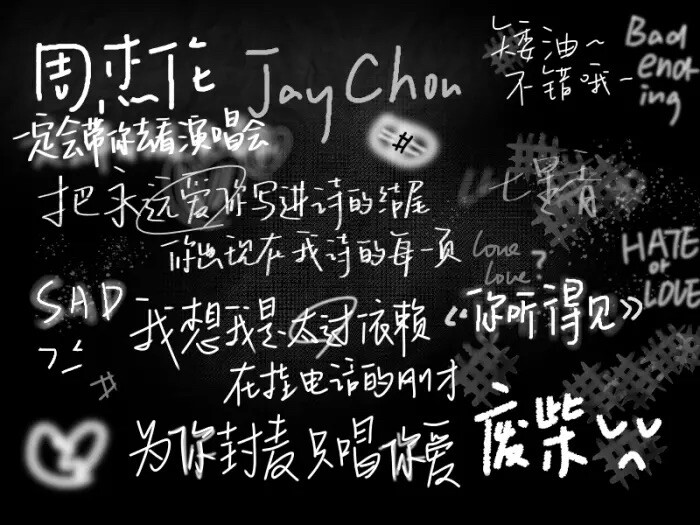 周杰伦 Jay Chou
矮油~
不错哦~
Bad
end
ing
一定会带你去看演唱会
#
把永远爱你写进诗的结尾
七里香
你出现在我诗的每一页
love
love?
HATE
or
LOVE
SAD
我想我是太过依赖
《你听得见》
在挂电话的刚才
#
为你封麦只唱你爱
废柴